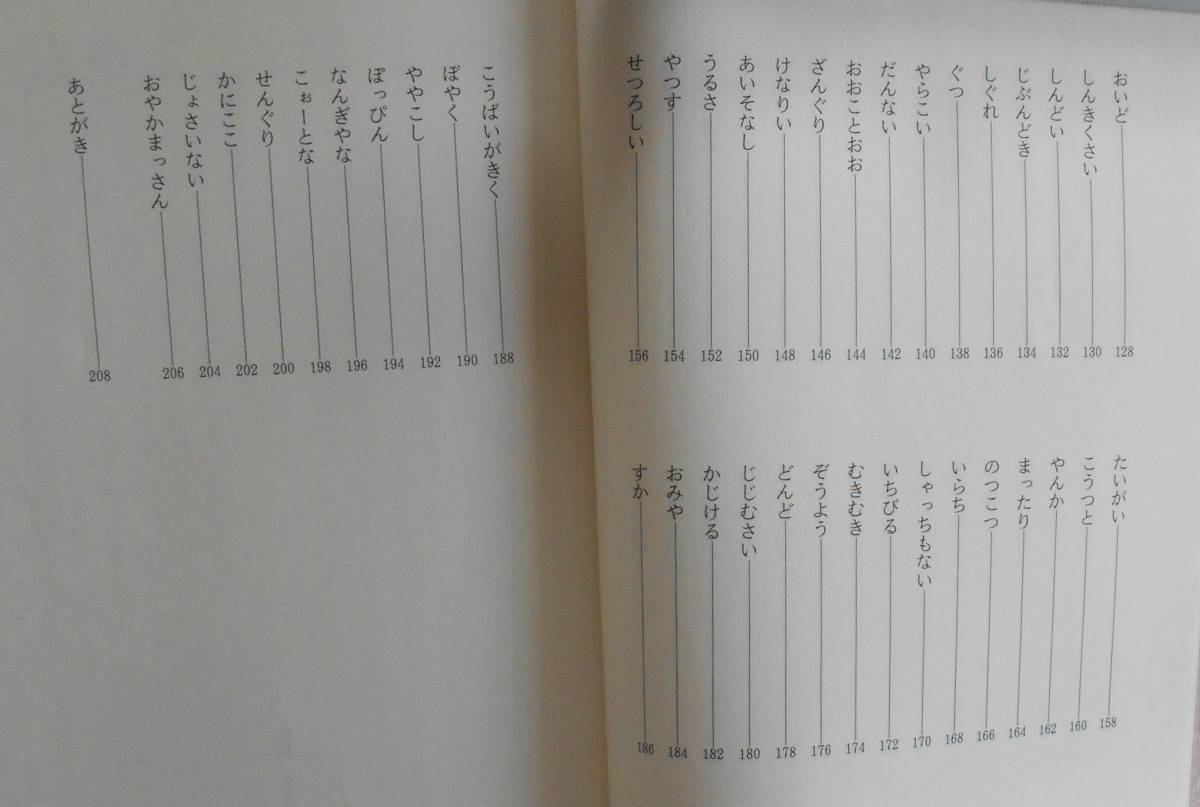 おいど 128
しんきくさい 130
しんどい 132
じぶんどき 134
しぐれ 136
ぐつ 138
やらこい 140
だんない 142
おおことおお 144
ざんぐり 146
けなりい 148
あいそなし 150
うるさ 152
やつす 154
せつろしい 156
たいがい 158
こうつと 160
やんか 162
まったり 164
のつこつ 166
いらち 168
しゃっちもない 170
いちびる 172
むきむき 174
ぞうよう 176
どんど 178
じじむさい 180
かじける 182
おみや 184
すか 186
こうばいがきく 188
ぼやく 190
ややこし 192
ぽっぴん 194
なんぎやな 196
こぉーとな 198
せんぐり 200
かにここ 202
じょさいない 204
おやかまっさん 206
あとがき 208